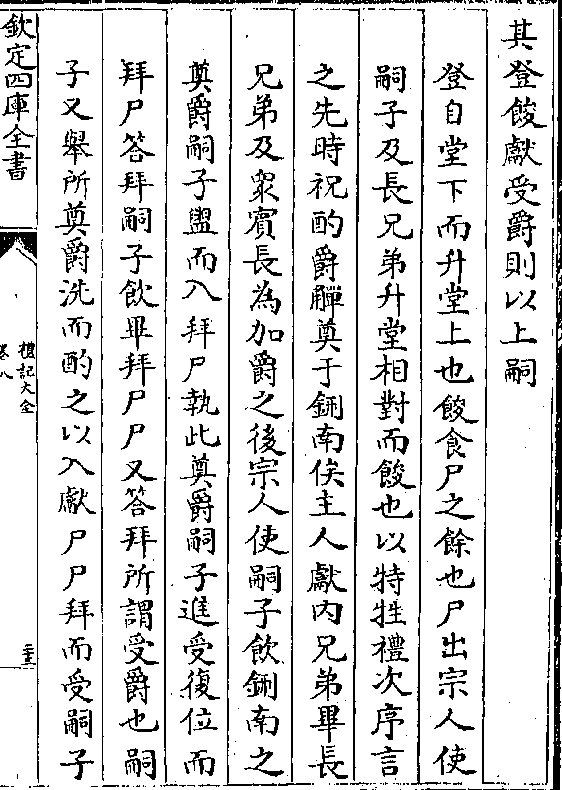 其登餕獻受爵則以上嗣
登自堂下而升堂上也餕食尸之餘也尸出宗人使
嗣子及長兄弟升堂相對而餕也以特牲禮次序言
之先時祝酌爵觶奠于鉶南俟主人獻內兄弟畢長
兄弟及衆賓長為加爵之後宗人使嗣子飲鉶南之
奠爵嗣子盥而入拜尸執此奠爵嗣子進受復位而
拜尸答拜嗣子飲畢拜尸尸又答拜所謂受爵也嗣
子又舉所奠爵洗而酌之以入獻尸尸拜而受嗣子
欽定四庫全書
禮記大全
卷八
二十三